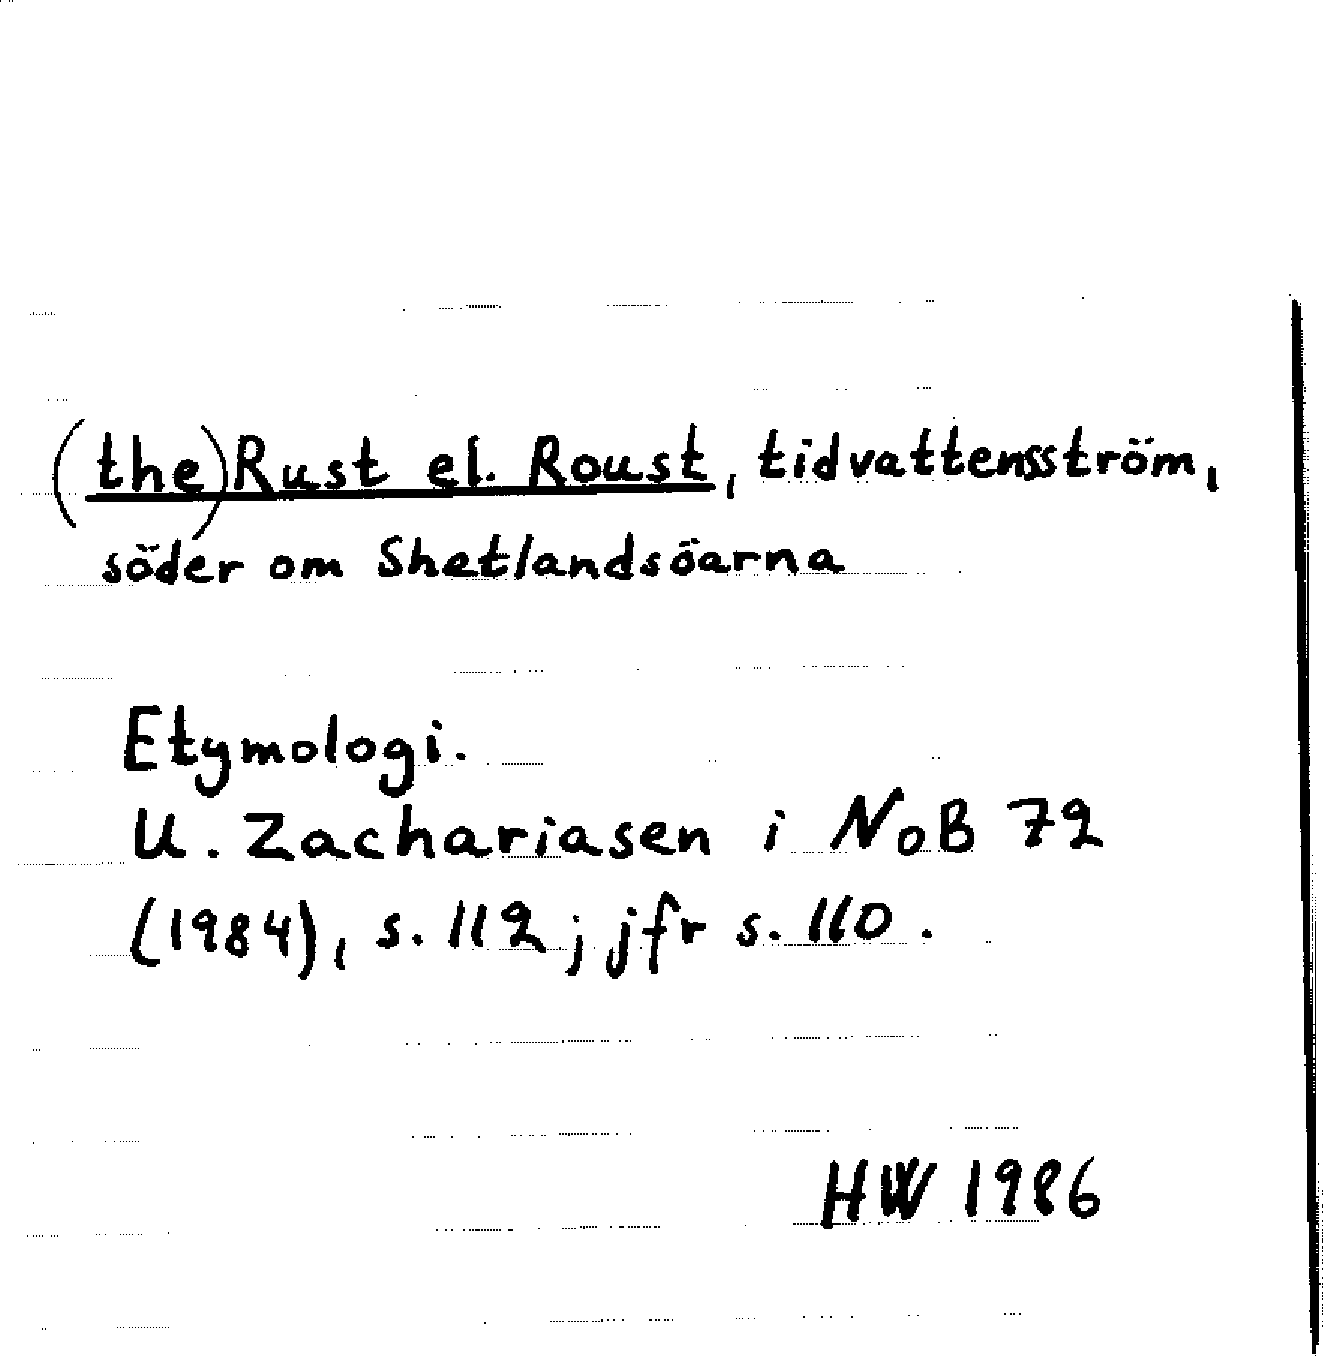 (the) Rust el. Roust, tidvattensström,
söder om Shetlandsöarna
Etymologi.
U. Zachariasen i NoB 72
(1984), s. 112; jfr s. 110.
HW 1986